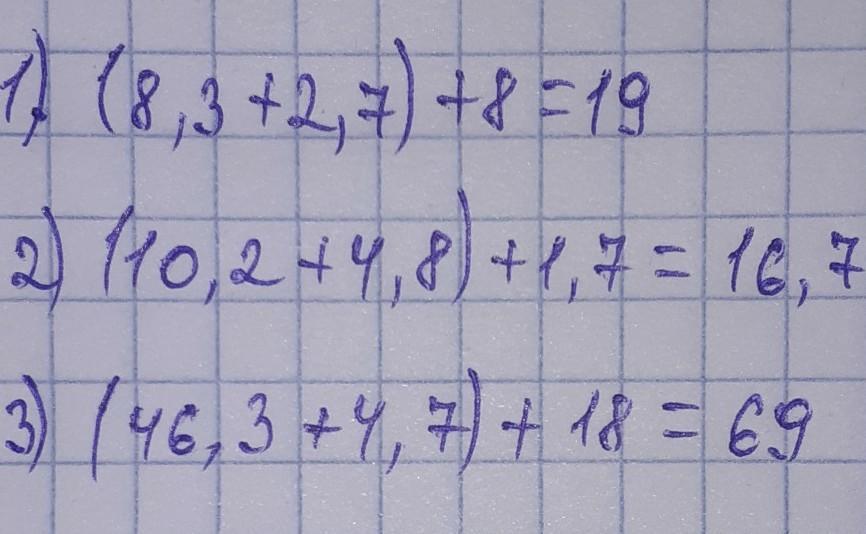 1) (8,3+2,7)+8=19
2) (10,2+4,8)+1,7=16,7
3) (46,3+4,7)+18=69